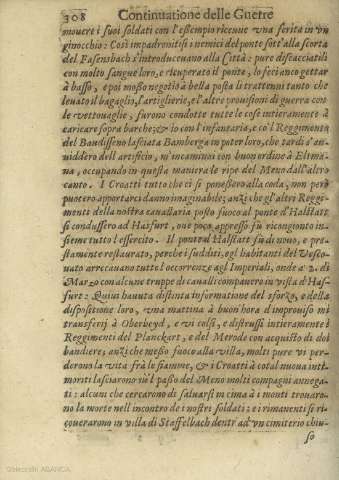 308 Continuatione delle Guerre
mouere i suoi soldati con l'essempio riceuue vna ferita in vn
ginocchio: Così impadronitisi i nemici del ponte sott'alla scorta
del Fasensbach s'introduceuano alla Città; pure discacciatili
con molto sangue loro, e ricuperato il ponte, lo feci anco gettar
à basso, e poi mosso negotio à bella posta li trattenni tanto che
leuato il bagaglio, l'artiglierie, e l'altre prouisioni di guerra con
le vettouaglie, furono condotte tutte le cose intieramente à
caricare sopra barche; & io con l'infantaria, e cò'l Reggimento
del Baudisseno lasciata Bamberga in poter loro, che tardi s'au-
uiddero dell'artificio, m'incaminai con buon ordine à Eltma-
na, occupando in questa maniera le ripe del Meno dall'altro
canto. I Croatti tutto che si ponessero alla coda, non però
puotero apportarci danno imaginabile; anzi che gl'altri Reggi-
menti della nostra cauallaria posto fuoco al ponte d'Halstart
si condussero ad Hasfurt, oue poco appresso fù ricongionto in-
sieme tutto l'essercito. Il ponte d'Halstart fù di nouo, e pre-
stamente restaurato, perche i sudditi, egl'habitanti del Vesco-
uato arrecauano tutte l'occorrenze agl'Imperiali, onde a' 2. di
Marzo con alcune truppe di caualli comparuero in vista d'Has-
furt: Quiui hauuta distinta informatione del sforzo, e della
dispositione loro, vna mattina à buon'hora d'improuiso mi
transferij à Oberheyd, e vi colsi, e distrussi intieramente i
Reggimenti del Planckart, e del Merode con acquisto di doi
bandiere; anzi che messo fuoco alla villa, molti pure vi per-
derono la vita frà le fiamme, & i Croatti à cotal nuoua inti-
moriti lasciarono nè'l passo del Meno molti compagni annega-
ti: alcuni che cercarono di saluarsi in cima à i monti trouaro-
no la morte nell'incontro de i nostri soldati; e i rimanenti si ri-
couerarono in villa di Staffelbach dentr'ad'vn cimiterio chiu-
so
Colección ABANCA